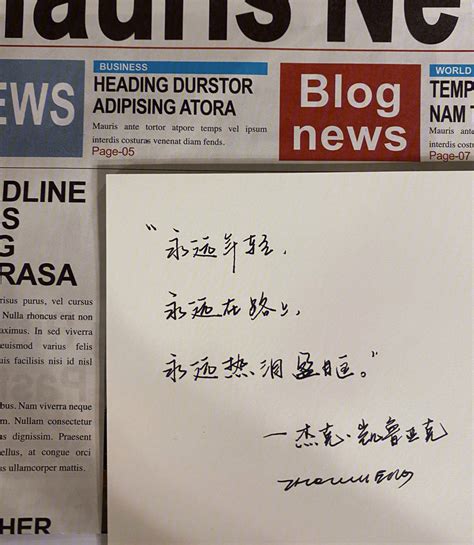 auris Ne
EWS
BUSINESS
HEADING DURSTOR
ADIPISING ATORA
Mauris ante tortor atpore temps vel ipsum
interdis costuras venenat diam fends.
Page-05
Blog
news
WORLD
TEMP
NAM T
Mauris ante
interdis cost
Page-07
DLINE
S
G
RASA
risus purus, vel cursus
Nulla rhoncus erat non
aximus. In sed viverra
euismod varius felis
uis facilisis nisi id nisl
bus. Nam viverra neque
m. Nullam consectetur
as dignissim. Praesent
ellus, at congue orci
s ullamcorper mattis.
HER
“永远年轻，
永远在路上，
永远热泪盈眶。”
—杰克·凯鲁亚克